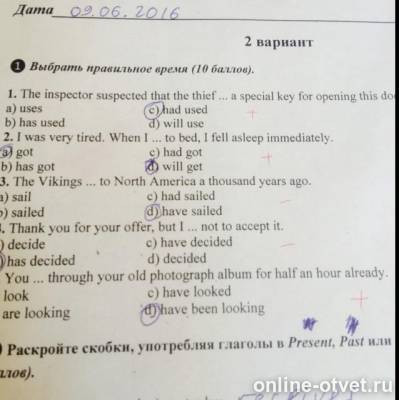 Дата 09.06.2016
2 вариант
1 Выбрать правильное время (10 баллов).
1. The inspector suspected that the thief ... a special key for opening this
a) uses c) had used
b) has used d) will use +
2. I was very tired. When I ... to bed, I fell asleep immediately.
a) got c) had got +
b) has got d) will get
3. The Vikings ... to North America a thousand years ago.
a) sail c) had sailed -
b) sailed d) have sailed
. Thank you for your offer, but I ... not to accept it.
) decide c) have decided -
) has decided d) decided
You ... through your old photograph album for half an hour already.
look c) have looked +
are looking d) have been looking
) Раскройте скобки, употребляя глаголы в Present, Past или
ллов).
online-otvet.ru